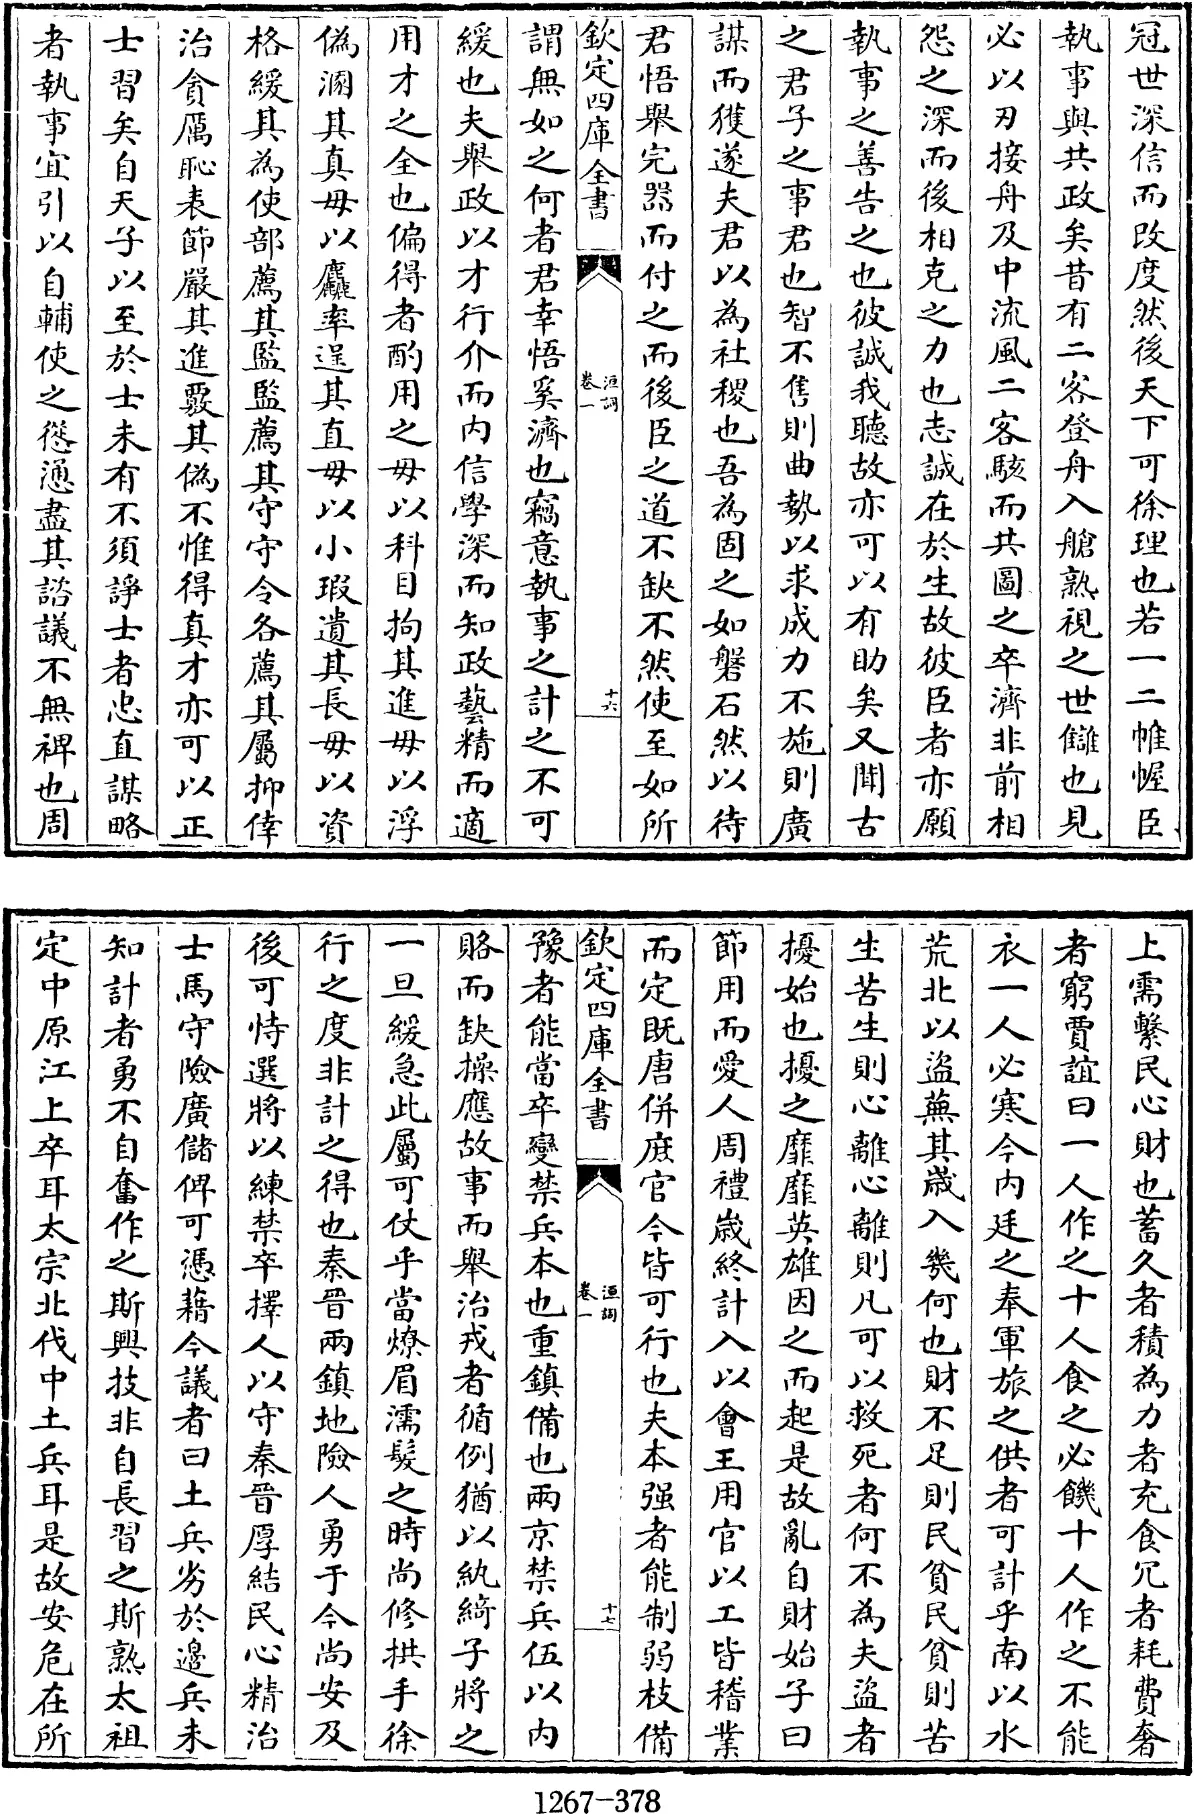 冠世深信而改度然後天下可徐理也若一二帷幄臣
執事與共政矣昔有二客登舟入艙熟視之世讎也見
必以刃接舟及中流風二客駭而共圖之卒濟非前相
怨之深而後相克之力也志誠在於生故彼臣者亦願
執事之善告之也彼誠我聽故亦可以有助矣又聞古
之君子之事君也智不售則曲勢以求成力不施則廣
謀而獲遂夫君以為社稷也吾為固之如磐石然以待
君悟舉完器而付之而後臣之道不缺不然使至如所
欽定四庫全書
洹詞
卷一
十六
謂無如之何者君幸悟奚濟也竊意執事之計之不可
緩也夫舉政以才行介而内信學深而知政藝精而適
用才之全也偏得者酌用之毋以科目拘其進毋以浮
偽溷其真毋以麤率逞其直毋以小瑕遺其長毋以資
格緩其為使部薦其監監薦其守守令各薦其屬抑倖
治貪厲恥表節嚴其進覈其偽不惟得真才亦可以正
士習矣自天子以至於士未有不須諍士者忠直謀略
者執事宜引以自輔使之慫慂盡其諮議不無裨也周
上需繫民心財也蓄久者積為力者充食冗者耗費奢
者窮賈誼曰一人作之十人食之必饑十人作之不能
衣一人必寒今内廷之奉軍旅之供者可計乎南以水
荒北以盜蕪其歲入幾何也財不足則民貧民貧則苦
生苦生則心離心離則凡可以救死者何不為夫盜者
擾始也擾之靡靡英雄因之而起是故亂自財始子曰
節用而愛人周禮歲終計入以會王用官以工皆稽業
而定既唐併庶官今皆可行也夫本强者能制弱枝備
欽定四庫全書
洹詞
卷一
十七
豫者能當卒變禁兵本也重鎮備也兩京禁兵伍以内
賂而缺操應故事而舉治戎者循例猶以紈綺子將之
一旦緩急此屬可仗乎當燎眉濡髮之時尚修拱手徐
行之度非計之得也秦晉兩鎮地險人勇于今尚安及
後可恃選將以練禁卒擇人以守秦晉厚結民心精治
士馬守險廣儲俾可憑藉今議者曰土兵劣於邊兵未
知計者勇不自奮作之斯興技非自長習之斯熟太祖
定中原江上卒耳太宗北伐中土兵耳是故安危在所
1267-378